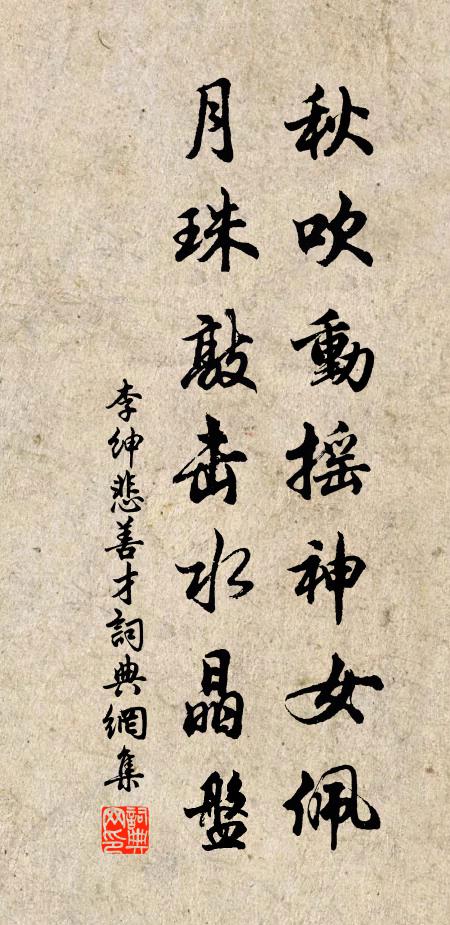 秋吹動摇神女佩
月珠敲击水晶盤
李紳悲善才詞典網集
詞典网印